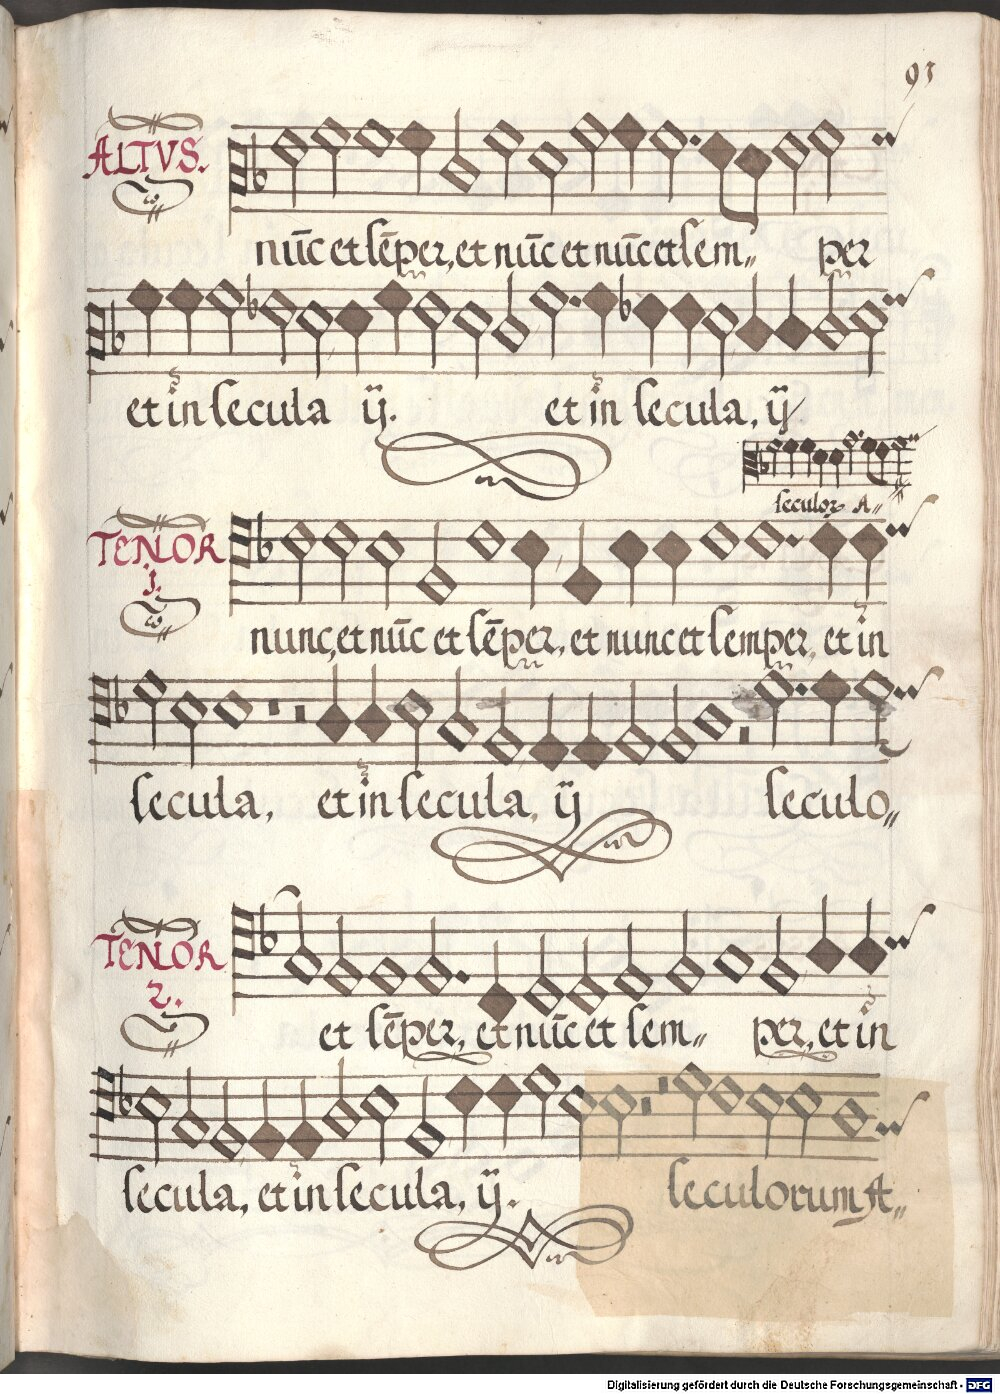 93
ALTVS.
nūc et sēper, et nūc et nūc et sem〃 per
et in secula ij. et in secula, ij
seculoꝝ A〃
TENOR
1.
nunc, et nūc et sēper, et nunc et semper, et in
secula, et in secula, ij seculo〃
TENOR
2.
et sēper, et nūc et sem〃 per, et in
secula, et in secula, ij. seculorum A〃
Digitalisierung gefördert durch die Deutsche Forschungsgemeinschaft - DFG